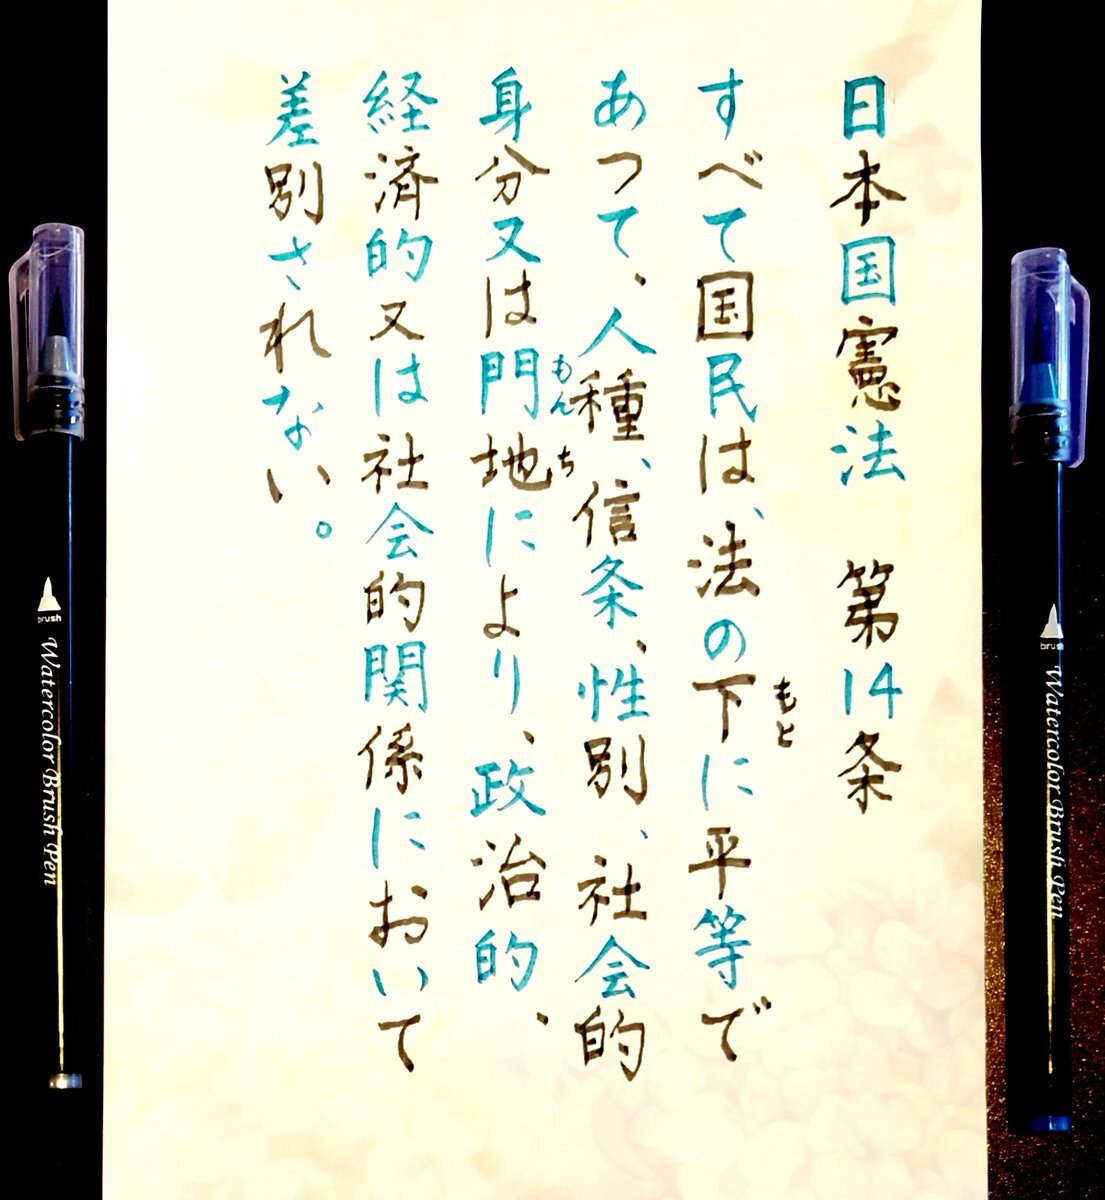 日本国憲法　第14条
すべて国民は、法の下に平等で
もと
あって、人種、信条、性別、社会的
身分又は門地により、政治的、
もんち
経済的又は社会的関係において
差別されない。
brush
Watercolor Brush Pen
brush
Watercolor Brush Pen